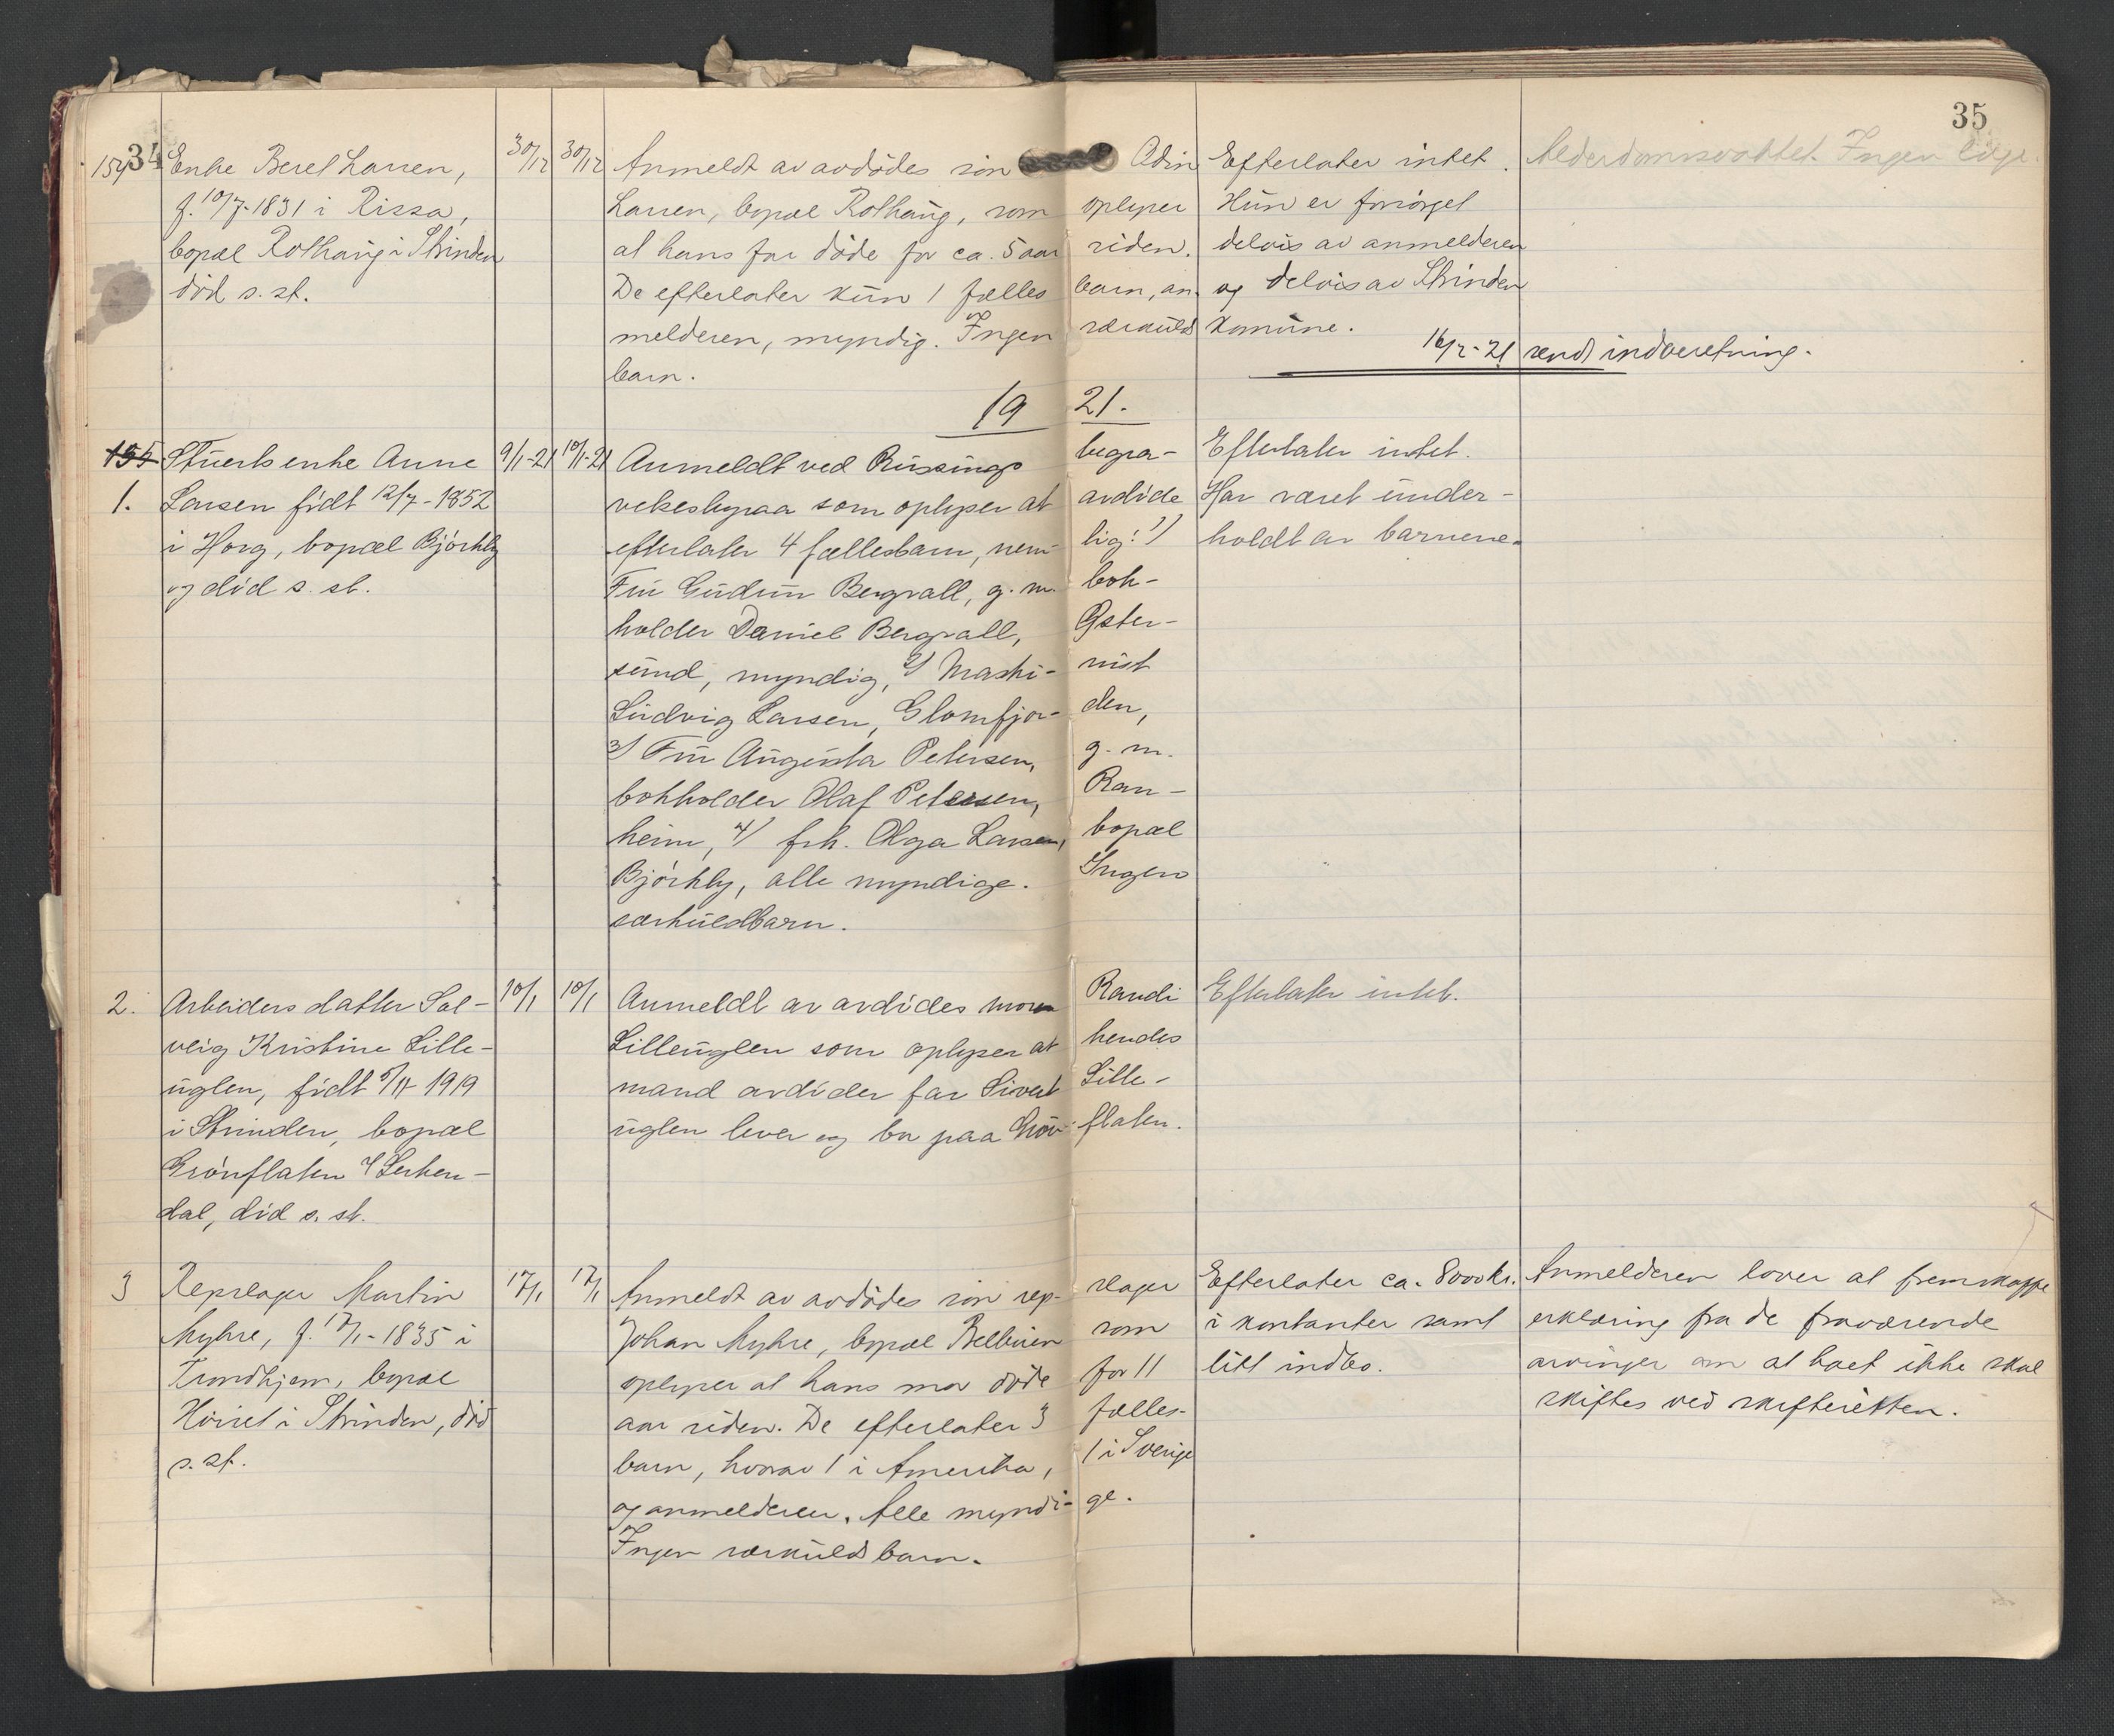 34
35
154
Enke Beret Larsen,
f. 10/7-1831 i Rissa,
bopæl Rothaug i Strinden
död s. st.
30/12 30/12
Anmeldt av avdödes sön Odin
Larsen, bopæl Rothaug, som oplyser
at hans far döde for ca. 5 aar siden.
De efterlater kun 1 fælles barn, an-
melderen, myndig. Ingen særkulds
barn.
Efterlater intet.
Hun er forsörget
delvis av anmelderen
og delvis av Strinden
Komune.
Alderdomssvakhet. Ingen læge.
16/2-21 sendt indberetning.
1921.
155
1.
Stuerts enke Anne
Larsen födt 12/7-1852
i Horg, bopæl Björkly
og död s. st.
9/1-21 10/1-21
Anmeldt ved Russings begra-
velsesbyraa som oplyser at avdöde
efterlater 4 fællesbarn, nemlig: 1/
Fru Gudrun Bergvall, g. m. bok-
holder Daniel Bergvall, Öster-
sund, myndig, 2/ Maski- nist
Ludvig Larsen, Glomfjor- den,
3/ Fru Augusta Petersen, g. m.
bokholder Olaf Petersen, Ran-
heim, 4/ frk. Olga Larsen, bopæl
Björkly, alle myndige. Ingen
særkuldbarn.
Efterlater intet.
Har været under-
holdt av barnene.
2.
Arbeiders datter Sol-
veig Kristine Lille-
uglen, födt 5/11-1919
i Strinden, bopæl
Grönflaten % Lerken-
dal, död s. st.
10/1 10/1
Anmeldt av avdödes mor Randi
Lilleuglen som oplyser at hendes
mand avdödes far Sivert Lille-
uglen lever og bor paa Grön- flaten.
Efterlater intet.
3
Repslager Martin
Myhre, f. 17/1-1835 i
Trondhjem, bopæl
Höiset i Strinden, död
s. st.
17/1 17/1
Anmeldt av avdödes sön rep- slager
Johan Myhre, bopæl Belbuen som
oplyser at hans mor döde for 11
aar siden. De efterlater 3 fælles-
barn, hvorav 1 i Amerika, 1 i Sverige
og anmelderen. Alle myndi- ge.
Ingen særkuldsbarn.
Efterlater ca. 8000 kr.
i kontanter samt
litt indbo.
Anmelderen lover at fremskaffe
erklæring fra de fraværende
arvinger om at boet ikke skal
skiftes ved skifteretten.